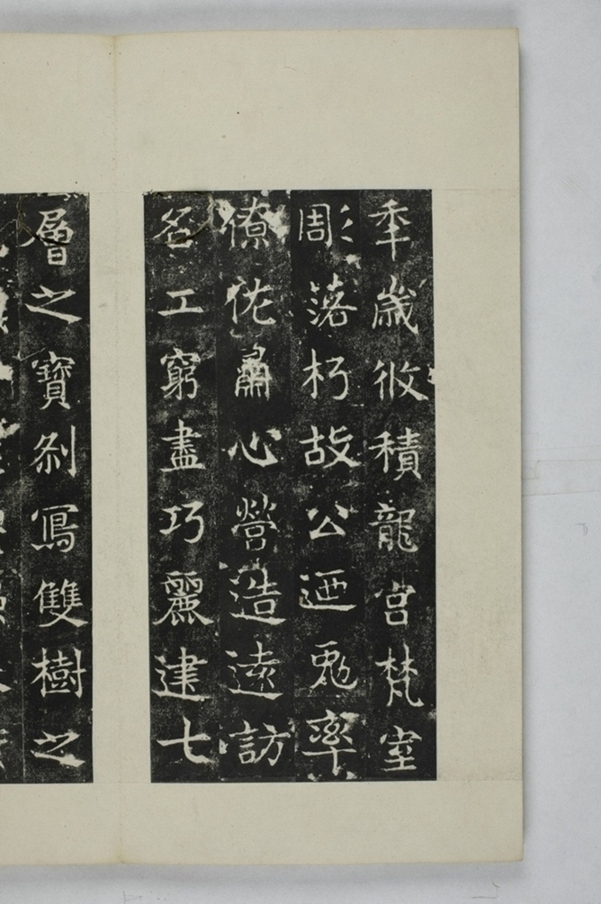 年歲攸積龍宮梵室
彫落朽故公迺勉率
僚佐肅心營造遠訪
名工窮盡巧麗建七
層之寶刹寫雙樹之